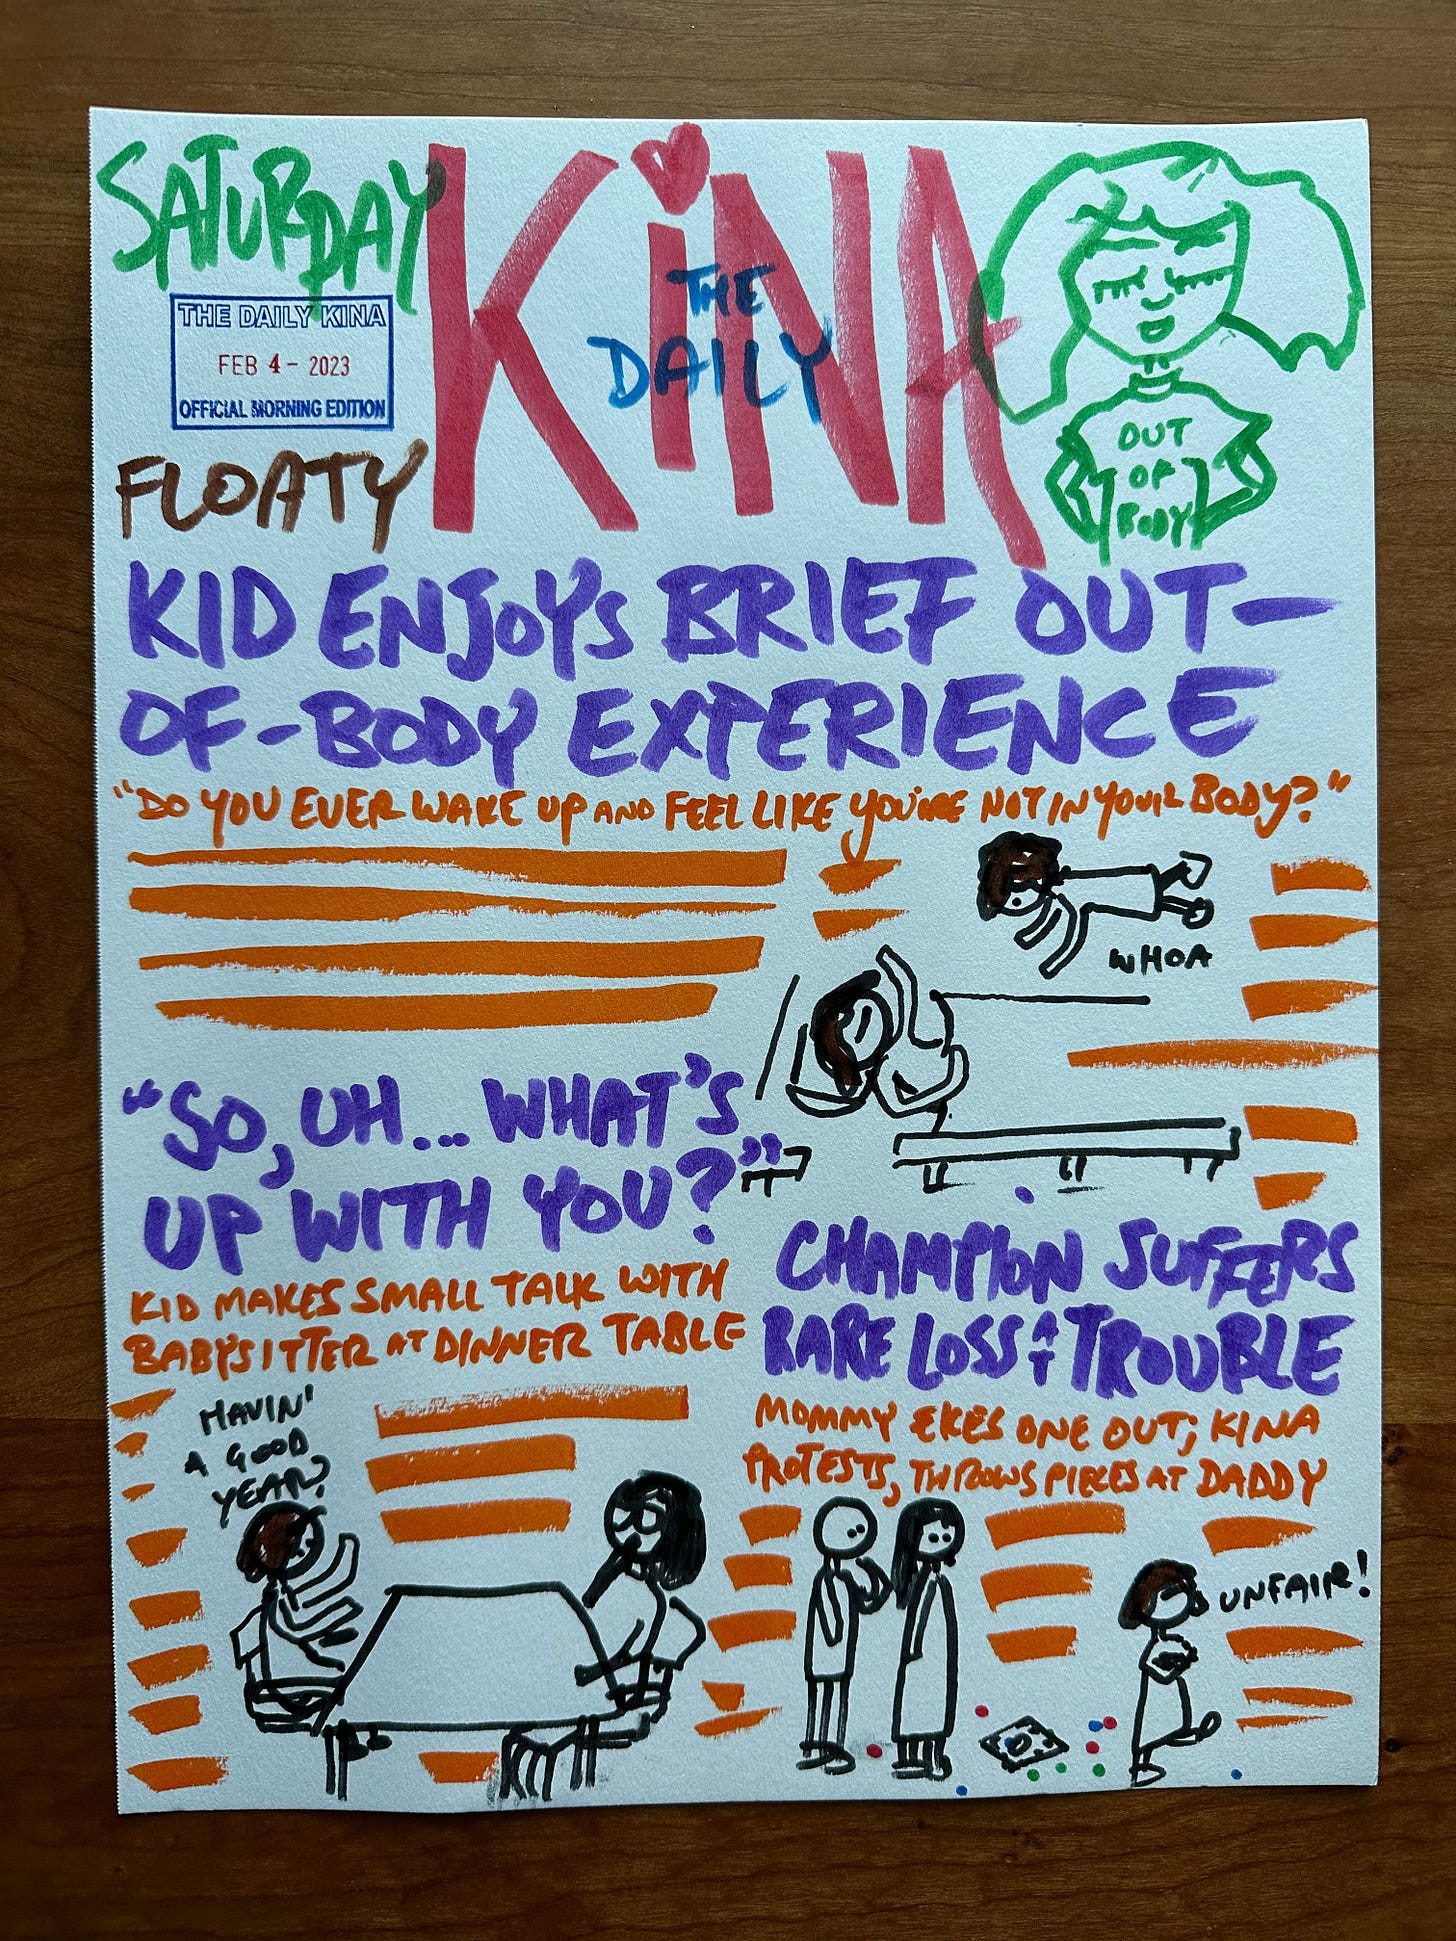 SATURDAY
KiNA
THE
DAILY
THE DAILY KINA
FEB 4 - 2023
OFFICIAL MORNING EDITION
FLOATY
OUT
OF
BODY
KID ENJOYS BRIEF OUT-
OF-BODY EXPERIENCE
"DO YOU EVER WAKE UP AND FEEL LIKE YOU'RE NOT IN YOUR BODY?"
WHOA
"SO, UH... WHAT'S
UP WITH YOU?"
KID MAKES SMALL TALK WITH
BABYSITTER AT DINNER TABLE
HAVIN'
A GOOD
YEAR?
CHAMPION SUFFERS
RARE LOSS AT TROUBLE
MOMMY EKES ONE OUT; KINA
PROTESTS, THROWS PIECES AT DADDY
UNFAIR!